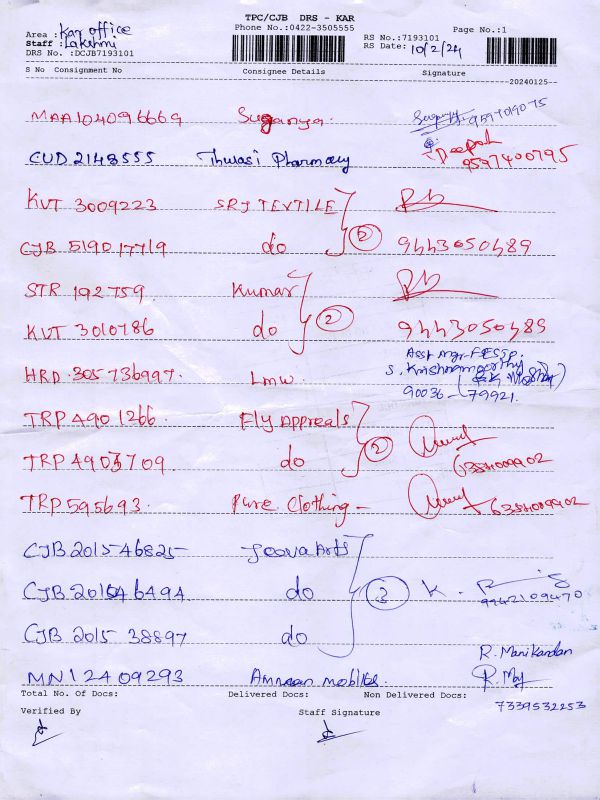 TPC/CJB DRS - KAR
Phone No.:0422-3505555
Area : Kar office
Staff : Lakshmi
DRS No. :DCJB7193101
RS No.:7193101
RS Date: 10/2/24
Page No.:1
S No Consignment No Consignee Details Signature
20240125--
MAA104096669 Suganya. 959709075
CUD 2148555 Thulasi Pharmacy Deepak 9597400795
KVT 3009223 SRJ TEXTILE
CJB 519017719 do 2 9443050489
STR 192759 Kumar
KVT 3010786 do 2 9443050489
HRD 305736997. Lmw. S. Krishnamoorthy 90036-79921.
TRP 4901266 Fly Appreals
TRP 4903709 do 2 6384009902
TRP 595693 Pure Clothing - 6384009902
CJB 201546825 Jeova Arts
CJB 201546494 do 3 K. 9942109470
CJB 2015 38897 do
MN12409293 Amnaan mobiles. R. Manikandan
Total No. Of Docs: Delivered Docs: Non Delivered Docs:
7339532253
Verified By Staff Signature